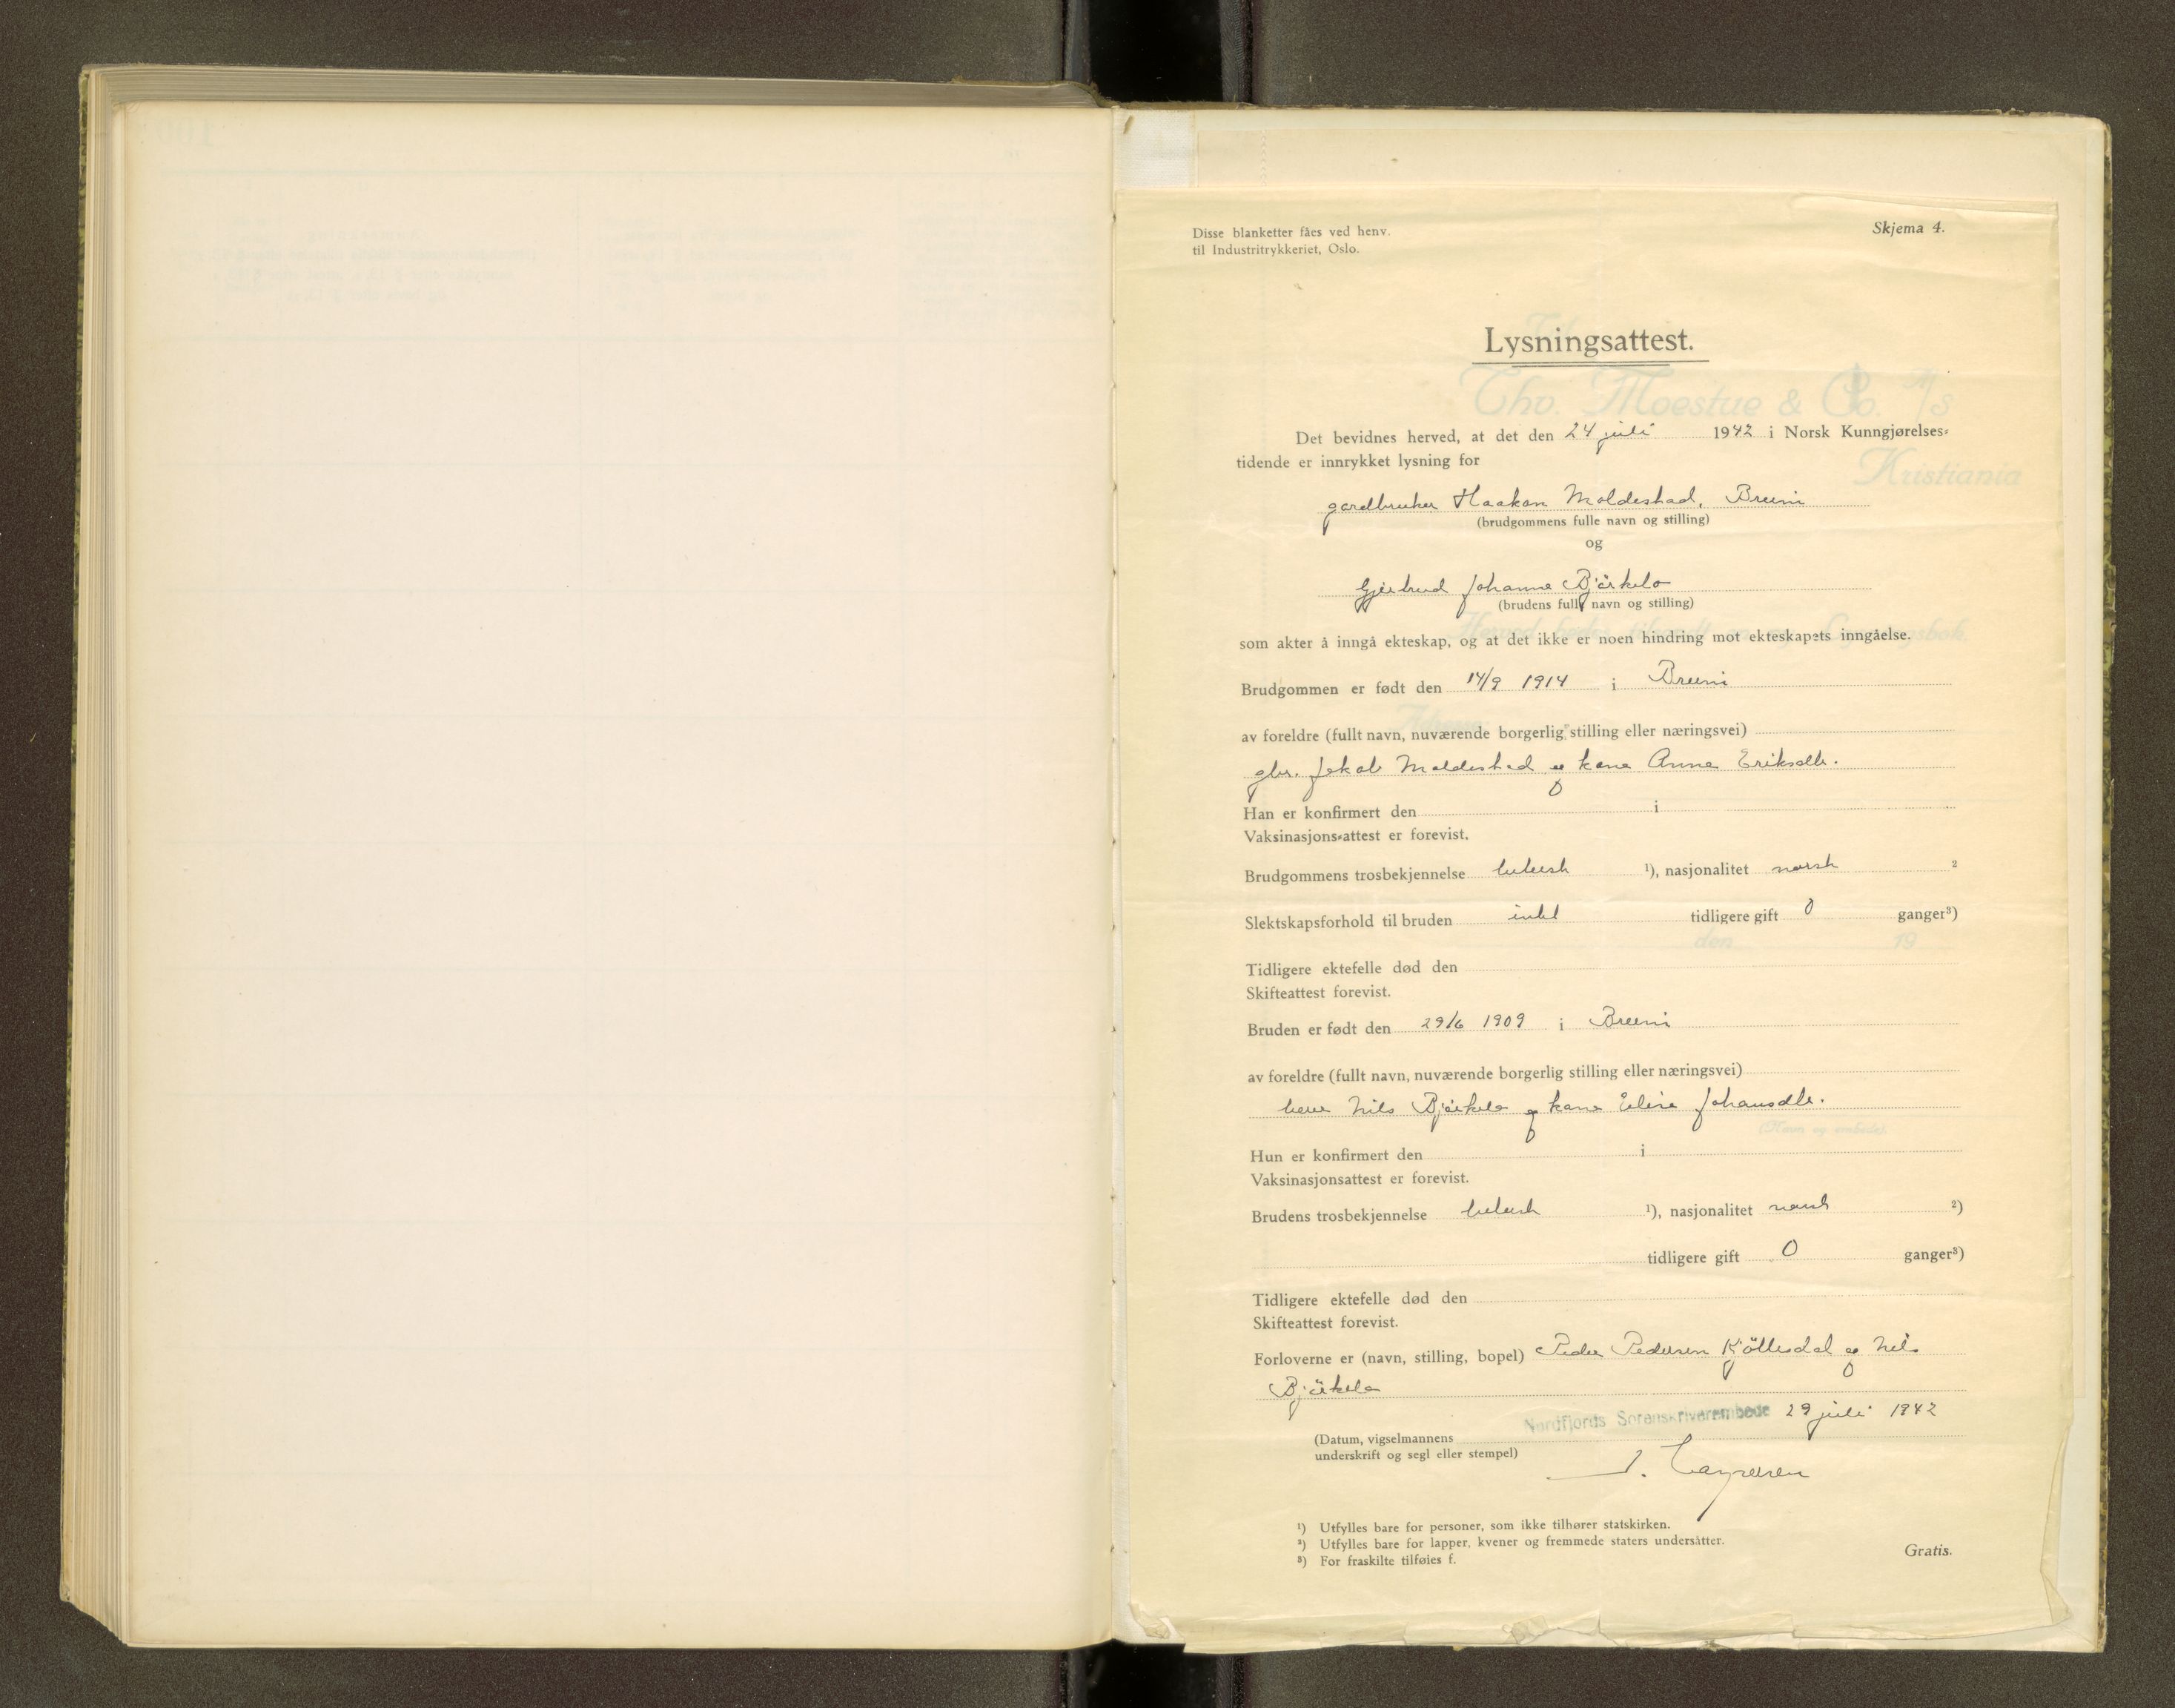 Disse blanketter fåes ved henv.
til Industritrykkeriet, Oslo.
Skjema 4.
Lysningsattest.
Thv. Moestue & Co. A/S
Kristiania
Det bevidnes herved, at det den 24 juli 1942 i Norsk Kunngjørelses-
tidende er innrykket lysning for
gardbruker Haakon Moldestad, Breim
(brudgommens fulle navn og stilling)
og
Gjertrud Johanne Bjørkelo
(brudens fulle navn og stilling)
som akter å inngå ekteskap, og at det ikke er noen hindring mot ekteskapets inngåelse.
Brudgommen er født den 14/9 1914 i Breim
av foreldre (fullt navn, nuværende borgerlig stilling eller næringsvei)
gbr. Jakob Moldestad og kona Anna Eriksdtr.
Han er konfirmert den i
Vaksinasjons-attest er forevist.
Brudgommens trosbekjennelse luthersk ¹), nasjonalitet norsk ²
Slektskapsforhold til bruden intet tidligere gift 0 ganger³)
den 19
Tidligere ektefelle død den
Skifteattest forevist.
Bruden er født den 29/6 1909 i Breim
av foreldre (fullt navn, nuværende borgerlig stilling eller næringsvei)
Nils Bjørkelo og kona Eline Johansdtr.
(Navn og embede)
Hun er konfirmert den i
Vaksinasjonsattest er forevist.
Brudens trosbekjennelse luthersk ¹), nasjonalitet norsk ²)
tidligere gift 0 ganger³)
Tidligere ektefelle død den
Skifteattest forevist.
Forloverne er (navn, stilling, bopel) Peder Pedersen Kjöllesdal og Nils
Bjørkelo
Nordfjords Sorenskriverembede 29 juli 1942
(Datum, vigselmannens
underskrift og segl eller stempel)
¹) Utfylles bare for personer, som ikke tilhører statskirken.
²) Utfylles bare for lapper, kvener og fremmede staters undersåtter.
³) For fraskilte tilføies f.
Gratis.